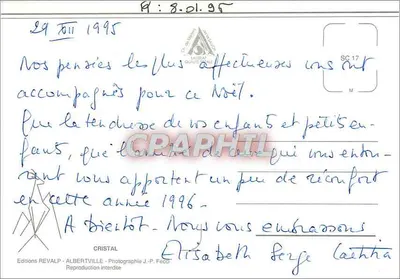 R : 8.01.95
29 XII 1995
SC 17
M
Nos pensées les plus affectueuses vous ont
accompagnés pour ce Noël.
Que la tendresse de vos enfants et petits en-
fants, que l'amour de ceux qui vous entou-
rent vous apportent un peu de réconfort
en cette année 1996.
A bientôt. Nous vous embrassons
Elisabeth Serge Laetitia
CPAPHIL
CRISTAL
Editions REVALP - ALBERTVILLE - Photographie J.-P. Feco
Reproduction interdite